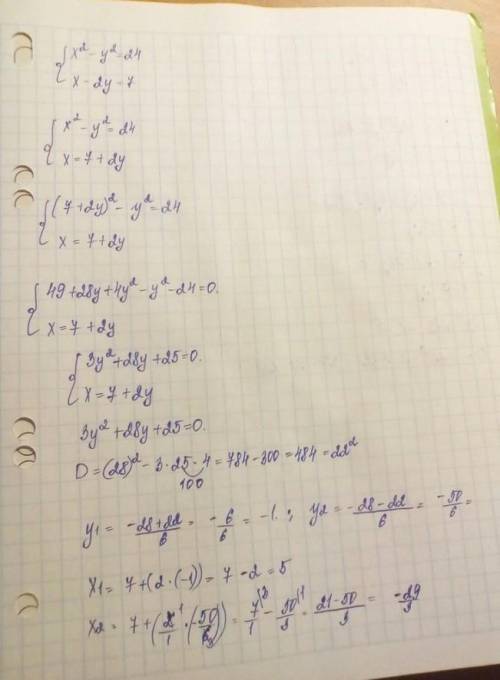 { x² - y² = 24
x - 2y = 7
{ x² - y² = 24
x = 7 + 2y
{ (7 + 2y)² - y² = 24
x = 7 + 2y
{ 49 + 28y + 4y² - y² - 24 = 0.
x = 7 + 2y
{ 3y² + 28y + 25 = 0.
x = 7 + 2y
3y² + 28y + 25 = 0.
D = (28)² - 3·25·4 = 784 - 300 = 484 = 22²
100
y1 = -28+22/6 = -6/6 = -1. ; y2 = -28-22/6 = -50/6 =
x1 = 7 + (2·(-1)) = 7 - 2 = 5
x2 = 7 + (2/1 · (-50/6)) = 7/1 - 50/3 = 21-50/3 = -29/3